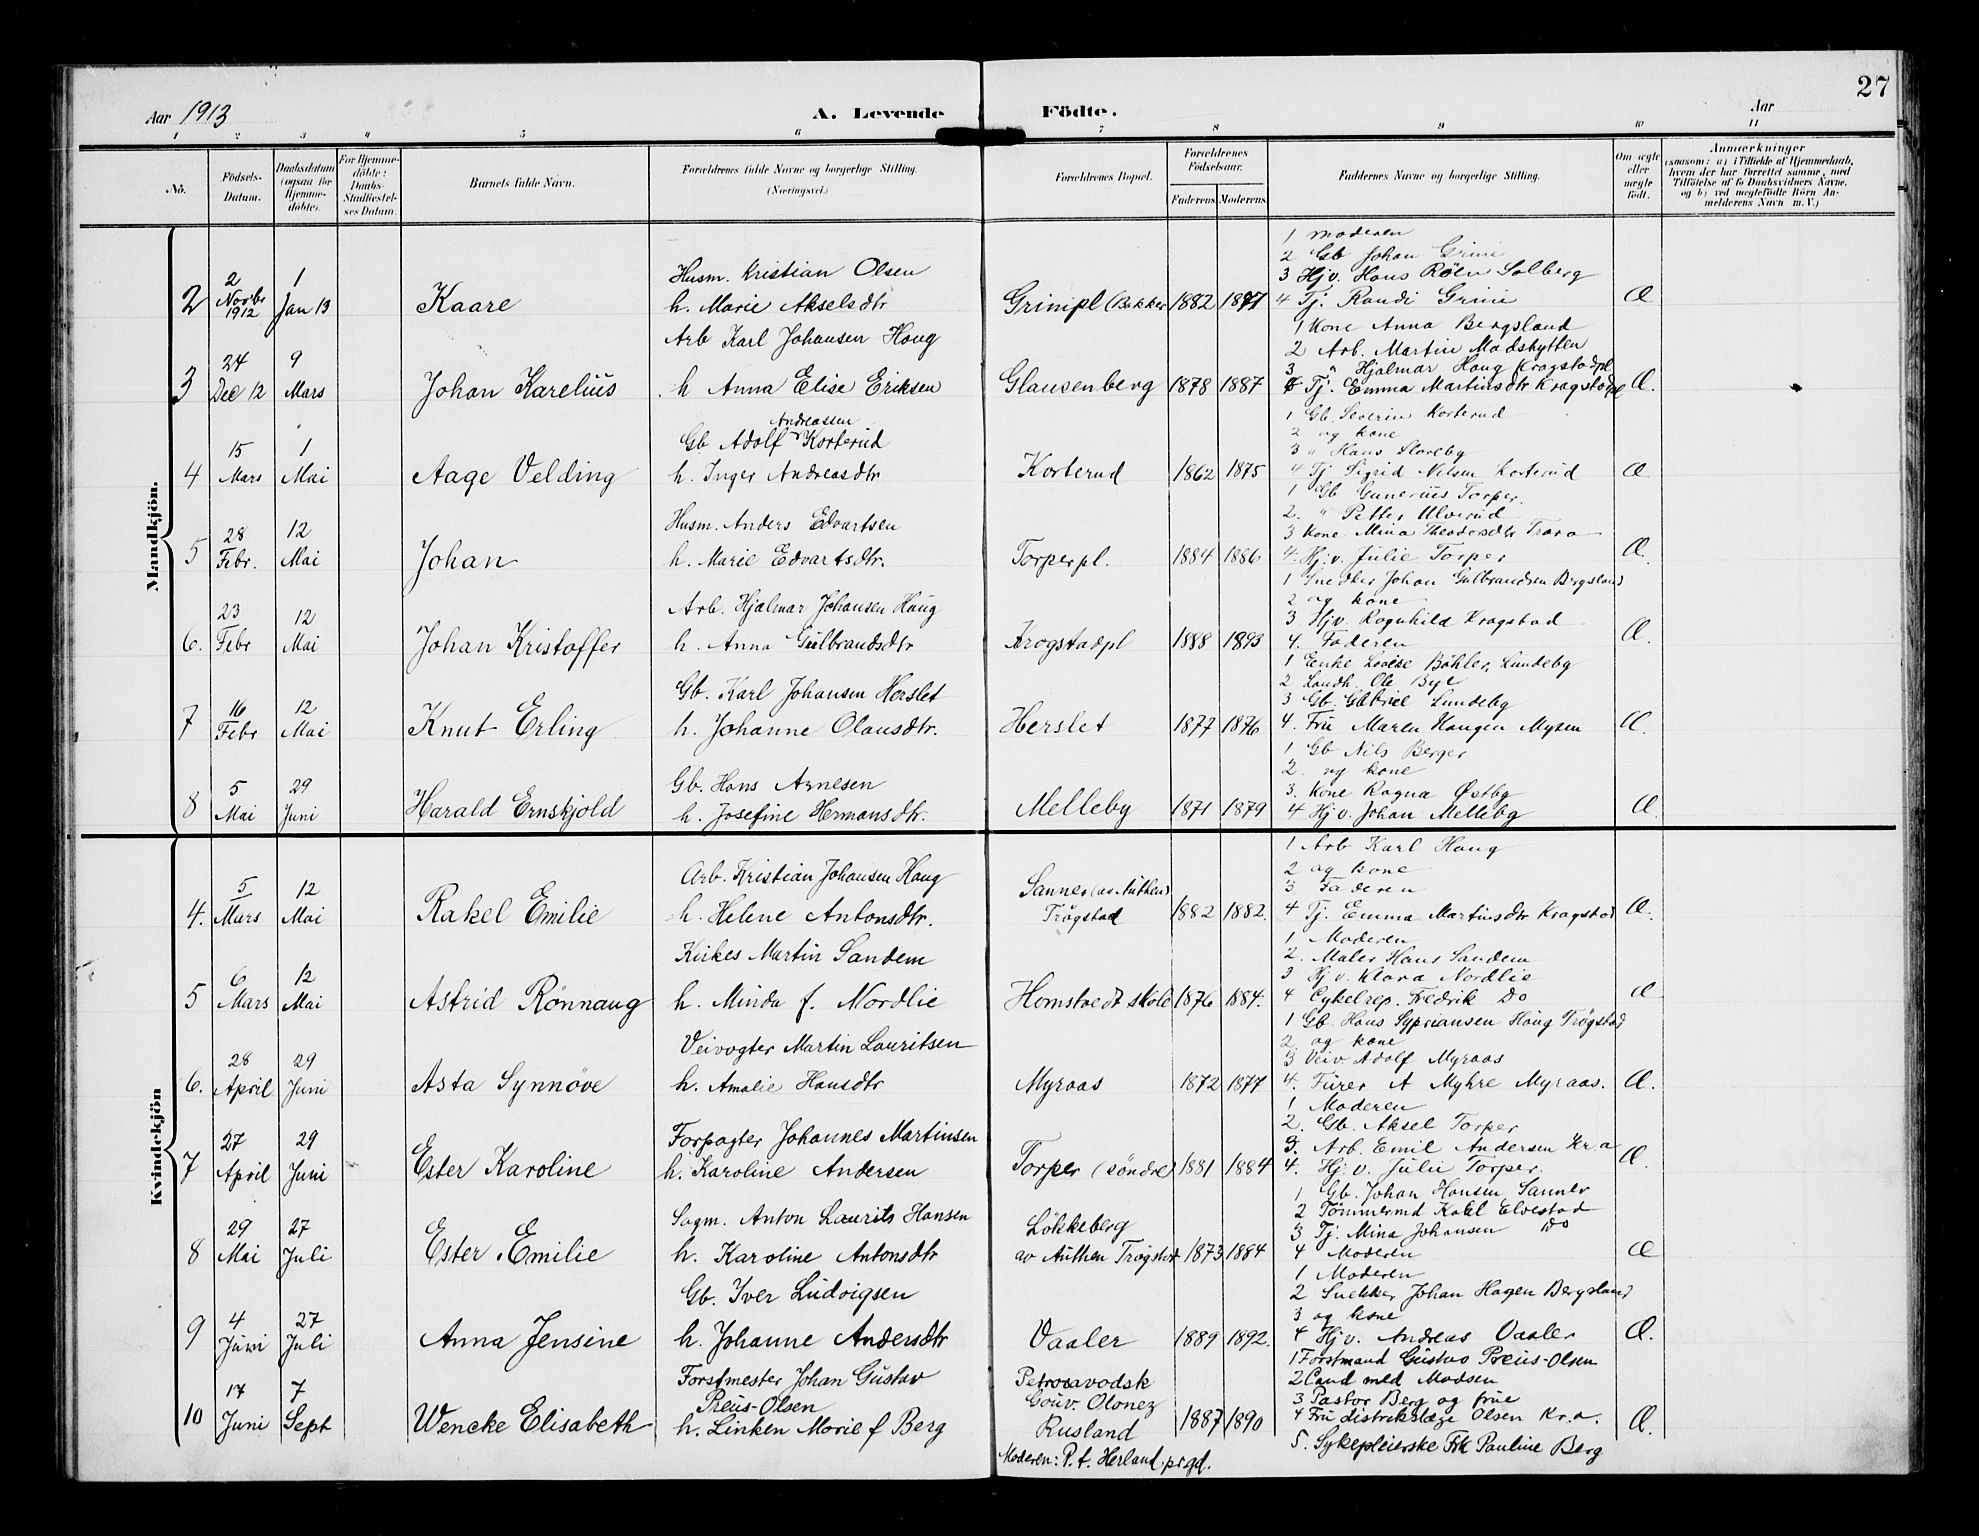 27
Aar 1913
A. Levende Födte.
Aar
1 2 3 4 5 6 7 8 9 10 11
No. Födsels-Datum. Daabsdatum (ogsaa for Hjemme-döbte). For Hjemme-döbte: Daabs-Stadfæstel-ses Datum. Barnets fulde Navn. Forældrenes fulde Navne og borgerlige Stilling. (Næringsvei.) Forældrenes Bopæl. Forældrenes Födselsaar. Faderens. Moderens. Faddernes Navne og borgerlige Stilling. Om ægte eller uægte födt. Anmærkninger (saasom: a) i Tilfælde af Hjemmedaab, hvem der har forrettet samme, med Tilföielse af to Daabsvidners Navne, og b) ved uægtefödte Börn Anmelderens Navn m. V.)
Mandkjön.
2 2 Novbr 1912 1 Jan 13 Kaare Husm. Kristian Olsen
h. Marie Akselsdtr Grinipl (Bakker 1882 1877
1 Moderen
2 Gb Johan Grini
3 Hjv. Hans Röen Solberg
4 Tj. Randi Grini Æ
3 24 Dec 12 9 Mars Johan Karelius Arb Karl Johansen Haug
h Anna Elise Eriksen Glausenberg 1878 1887
1 Kone Anna Bergsland
2 Arb. Martin Madshytten
3 " Hjalmar Haug Kragstadpl
4 Tj. Emma Martinsdtr Kragstadpl Æ.
4 15 Mars 1 Mai Aage Velding Gb Adolf Andreassen Korterud
h. Inger Andreasdtr Korterud 1862 1875
1 Gb. Severin Korterud
2 og kone
3 " Hans Storeby
4 Tj Sigrid Nilsen Korterud Æ
5 28 Febr. 12 Mai Johan Husm. Anders Edvartsen
h. Marie Edvartsdtr. Torperpl. 1884 1886
1 Gb Gunerius Torper.
2. " Petter Ulverud
3 Kone Mina Theodorsdtr Trara
4. Hj.v. Julie Torper Æ.
6. 23 Febr 12 Mai Johan Kristoffer Arb. Hjalmar Johansen Haug
h. Anna Gulbrandsdtr Krogstadpl 1888 1893
1 Snedker Johan Gulbrandsen Bergsland
2 og kone
3 Hjv Ragnhild Kragstad
4. Faderen Æ.
7 16 Febr 12 Mai Knut Erling Gb. Karl Johansen Herslet
h. Johanne Olausdtr. Herslet 1877 1876
1 Enke Lovise Böhler, Lundeby
2 Landh. Ole Bye
3 Gb. Gabriel Lundeby
4. Fru Maren Haugen Mysen Æ.
8 5 Mai 29 Juni Harald Ernskjold Gb. Hans Arnesen
h. Josefine Hermansdtr. Melleby 1871 1879
1 Gb Nils Berger
2. og kone
3. Kone Ragna Østby
4 Hjv. Johan Melleby Æ.
Kvindekjön
4. 5 Mars 12 Mai Rakel Emilie Arb. Kristian Johansen Haug
h. Helene Antonsdtr. Sanner (av Authen) Trögstad 1882 1882.
1 Arb Karl Haug
2 og kone
3 Faderen
4 Tj. Emma Martinsdtr Kragstad Æ.
5 6 Mars 12 Mai Astrid Rönnaug Kirkes Martin Sandem
h. Minda f. Nordlie Homstvedt skole 1876 1884.
1 Moderen
2. Maler Hans Sandem
3 Hj v. Klara Nordlie
4 Cykelrep. Fredrik Do Æ
6. 28 April 29 Juni Asta Synnöve Veivogter Martin Lauritsen
h. Amalie Hansdtr Myraas 1872 1877
1 Gb. Hans Sypriansen Haug Trögstad
2. og kone
3 Veiv Adolf Myraas
4. Furer A Myhre Myraas. Æ.
7 27 April 29 Juni Ester Karoline Forpagter Johannes Martinsen
h. Karoline Andersen Torper (söndre) 1881 1884
1 Moderen
2. Gb. Aksel Torper
3. Arb. Emil Andersen Kr.a
4. Hj.v. Julie Torper. Æ.
8 29 Mai 27 Juli Ester Emilie Sagm. Anton Laurits Hansen
h. Karoline Antonsdtr Lökkeberg av Authen Trögstad 1873 1884
1 Gb. Johan Hansen Sanner
2 Tömmermd Karl Elvestad
3 Tj. Mina Johansen Do
4 Moderen Æ
9 4 Juni 27 Juli Anna Jensine Gb. Iver Ludvigsen
h. Johanne Andersdtr Vaaler 1889 1892.
1 Moderen
2 Snekker Johan Hagen Bergsland
3 og kone
4 Hjv. Andreas Vaaler Æ.
10 17 Juni 7 Sept Wencke Elisabeth Forstmester Johan Gustav
Preus-Olsen
h. Linken Marie f Berg Petrosavodsk
Gouv. Olonez
Rusland 1887 1890
1 Forstmand Gustav Preus-Olsen
2 Cand med Madsen
3 Pastor Berg og frue
4 Fru distriktslæge Olsen Kr.a. Æ.
5. Sykepleierske Frk Pauline Berg
Moderen: P.t. Herland prgd.